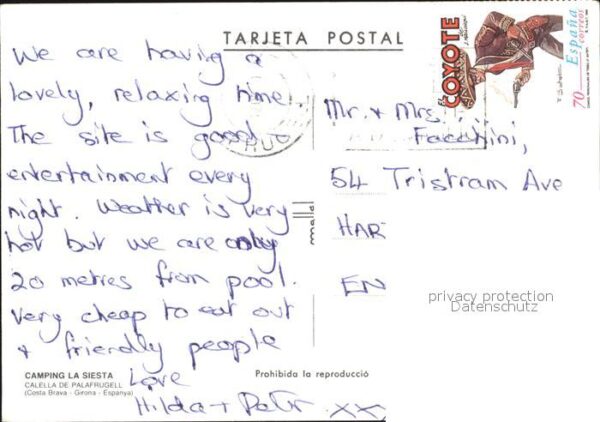 TARJETA POSTAL
We are having a
lovely, relaxing time.
The site is good
entertainment every
night. Weather is very
hot but we are only
20 metres from pool.
Very cheap to eat out
+ friendly people
Love
Hilda + Petr xx
EL COYOTE
España
correos
70
Mr. + Mrs.
Facchini,
54 Tristram Ave
HAR
EN
privacy protection
Datenschutz
CAMPING LA SIESTA
CALELLA DE PALAFRUGELL
(Costa Brava - Girona - Espanya)
Prohibida la reproducció